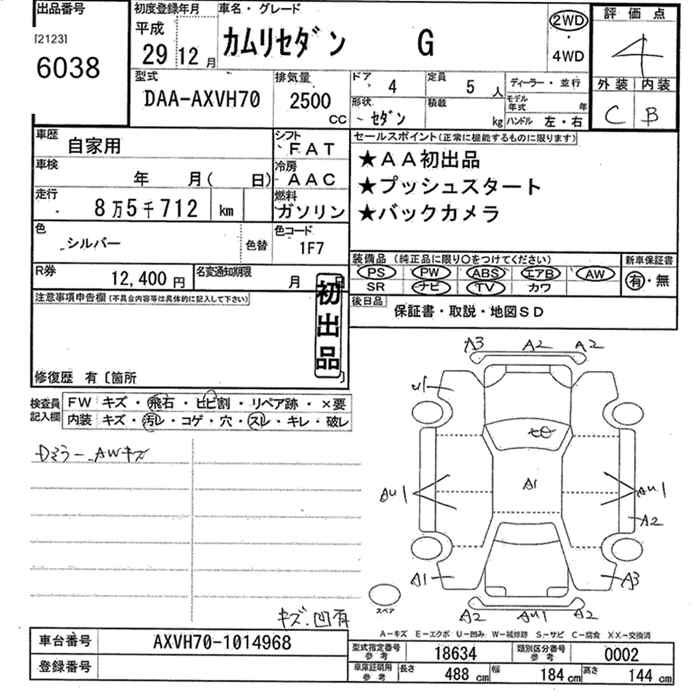 出品番号 初度登録年月 車名・グレード 評価点
[2123] 平成 カムリセダン G 2WD 4
6038 29 12月 ・4WD 外装 内装
型式 排気量 ドア 4 定員 5人 ディーラー・並行 C B
DAA-AXVH70 2500 CC 形状 セダン 積載 kg モデル年式 年 ハンドル 左・右
車歴 自家用 シフト FAT セールスポイント(正常に機能するものに限ります)
車検 年 月( 日) 冷房 AAC ★AA初出品
走行 8万5千712 km 燃料 ガソリン ★プッシュスタート
★バックカメラ
色 シルバー 色替 色コード 1F7
装備品(純正品に限り○をつけてください) 新車保証書
R券 12,400円 名変通知期限 月 日 PS PW ABS エアB AW 有・無
SR ナビ TV カワ
注意事項申告欄(不具合内容等は具体的に記入して下さい) 初出品 後日品 保証書・取説・地図SD
修復歴 有〔箇所
A3 A2 A2
検査員記入欄 FW キズ・飛石・ヒビ割・リペア跡・×要
内装 キズ・汚レ・コゲ・穴・スレ・キレ・破レ
U1
Dミラー、AWキズ
A1
AU1 AU1
A2
A1 A3
スペア
キズ、凹有 A2 AU1 A2
A-キズ E-エクボ U-凹み W-補修跡 S-サビ C-腐食 XX-交換済
車台番号 AXVH70-1014968 型式指定番号 参考 18634 類別区分番号 参考 0002
登録番号 車庫証明用 参考 長さ 488 cm 幅 184 cm 高さ 144 cm